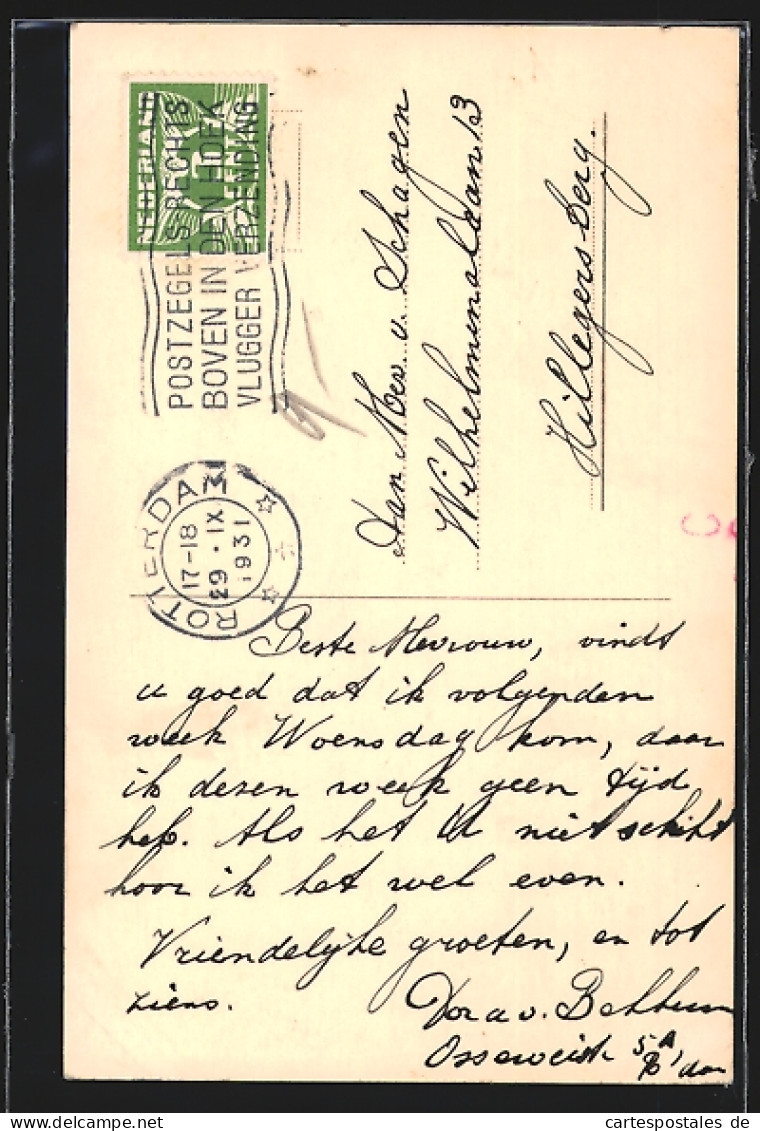 NEDERLAND
CENT
POSTZEGELS RECHTS
BOVEN IN DEN HOEK
VLUGGER VERZENDING
ROTTERDAM
17-18
29 · IX
1931
Aan Mev v. Schagen
Wilhelminalaan 13
Hillegersberg.
Beste Mevrouw, vindt
u goed dat ik volgenden
week Woensdag kom, daar
ik dezen week geen tijd
heb. Als het U niet schikt
hoor ik het wel even.
Vriendelijke groeten, en tot
ziens.
Dora v. Bekkum
5A
R'dam
www.cartespostales.de
cartespostales de